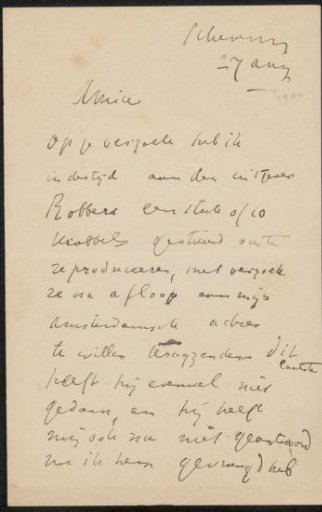 Schevening
27 aug
Amice
Op je verzoek heb ik
indertijd aan den uitgever
Robbers een stuk of 10
krabbels gestuurd om te
reproduceeren, met verzoek
ze na afloop aan mijn
Amsterdamsch adres
te willen terugzenden dit
laatste
heeft hij evenwel niet
gedaan, en hij heeft
mij ook nu niet geantwoord
nu ik hem gevraagd heb